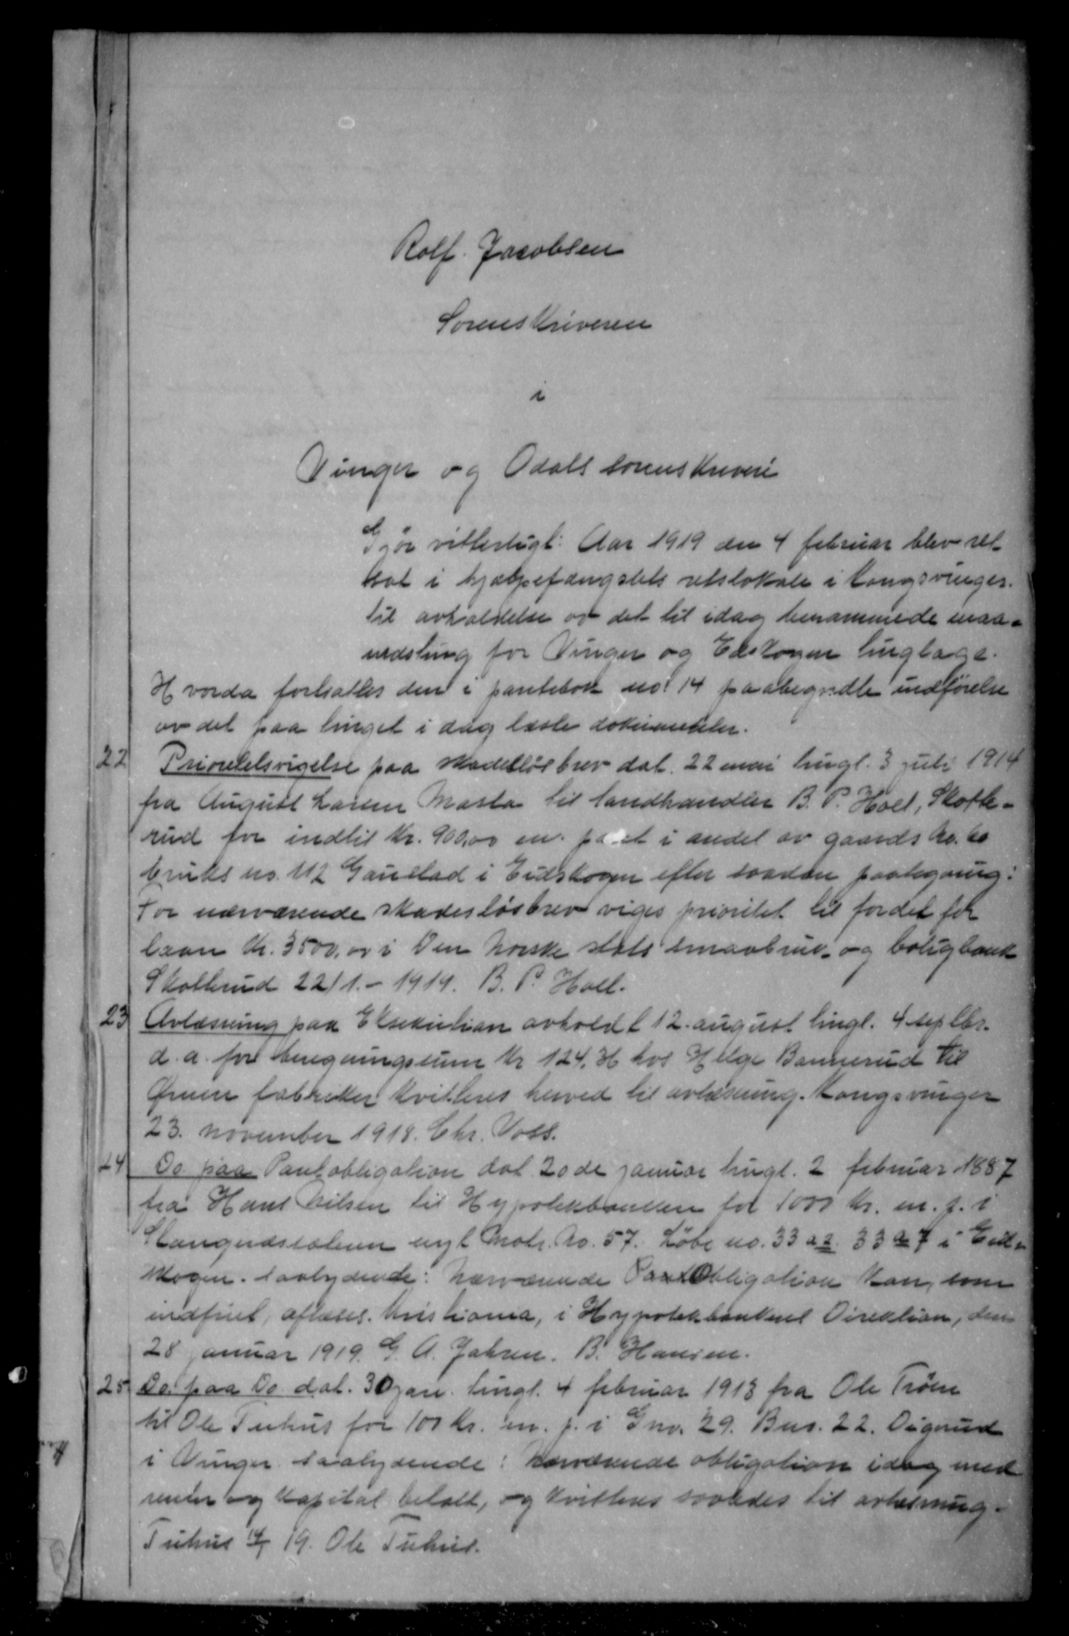 Rolf. Jacobsen
Sorenskriveren
i
Vinger og Odals sorenskriveri
Gjør vitterligt: Aar 1919 den 4 februar blev ret
sat i hjælpefængslets retslokale i Kongsvinger.
til avholdelse av det til idag berammede maa-
nedsting for Vinger og Eidskogen tinglage.
Hvorda fortsattes den i pantebok no: 14 paabegyndte indførelse
av det paa tinget i dag læste dokumenter.
22 Prioritetsvigelse paa skadesløsbrev dat. 22 mai tingl. 3 juli 1914
fra August Larsen Masta til landhandler B. P. Holt, Skotte-
rud for indtil Kr. 900,00 m. pant i andel av gaards No. 60
bruks no. 112 Gaustad i Eidskogen efter saadan paategning:
For nærværende skadesløsbrev viges prioritet til fordel for
laan Kr. 3500,00 i Den Norske stats smaabruk- og boligbank
Skotterud 22/1.- 1919. B. P. Holt.
23 Avlæsning paa Eksekution avholdt 12. august tingl. 4 septbr.
d. a. for tvugningssum Kr 124,34 hos Helge Bannerud til
Ørnen fabrikker kvitteres herved til avlæsning. Kongsvinger
23. november 1918. Chr. Voss.
24 Do. paa Pantobligation dat 20de januar tingl. 2 februar 1887
fra Hans Nilsen til Hypotekbanken for 1000 Kr. m. p. i
nyt Matr. No. 57. Løbe no. 33 a 2. 33 a 7 i Eid-
skogen. saalydende: Nærværende PantObligation kan, som
indfriet, aflæses. Kristiania, i Hypotekbankens Direktion, den
28 januar 1919. G. A. Jahren. B. Hansen.
25 Do. paa Do. dat. 30 jan. tingl. 4 februar 1913 fra Ole Trøen
til Ole Tuhus for 100 Kr. m. p. i Gno. 29. Bno. 22. Digerud
i Vinger saalydende: Nærværende obligation idag med
renter og kapital betalt, og kvitteres saaledes til avlæsning.
Tuhus 14/1 19. Ole Tuhus.